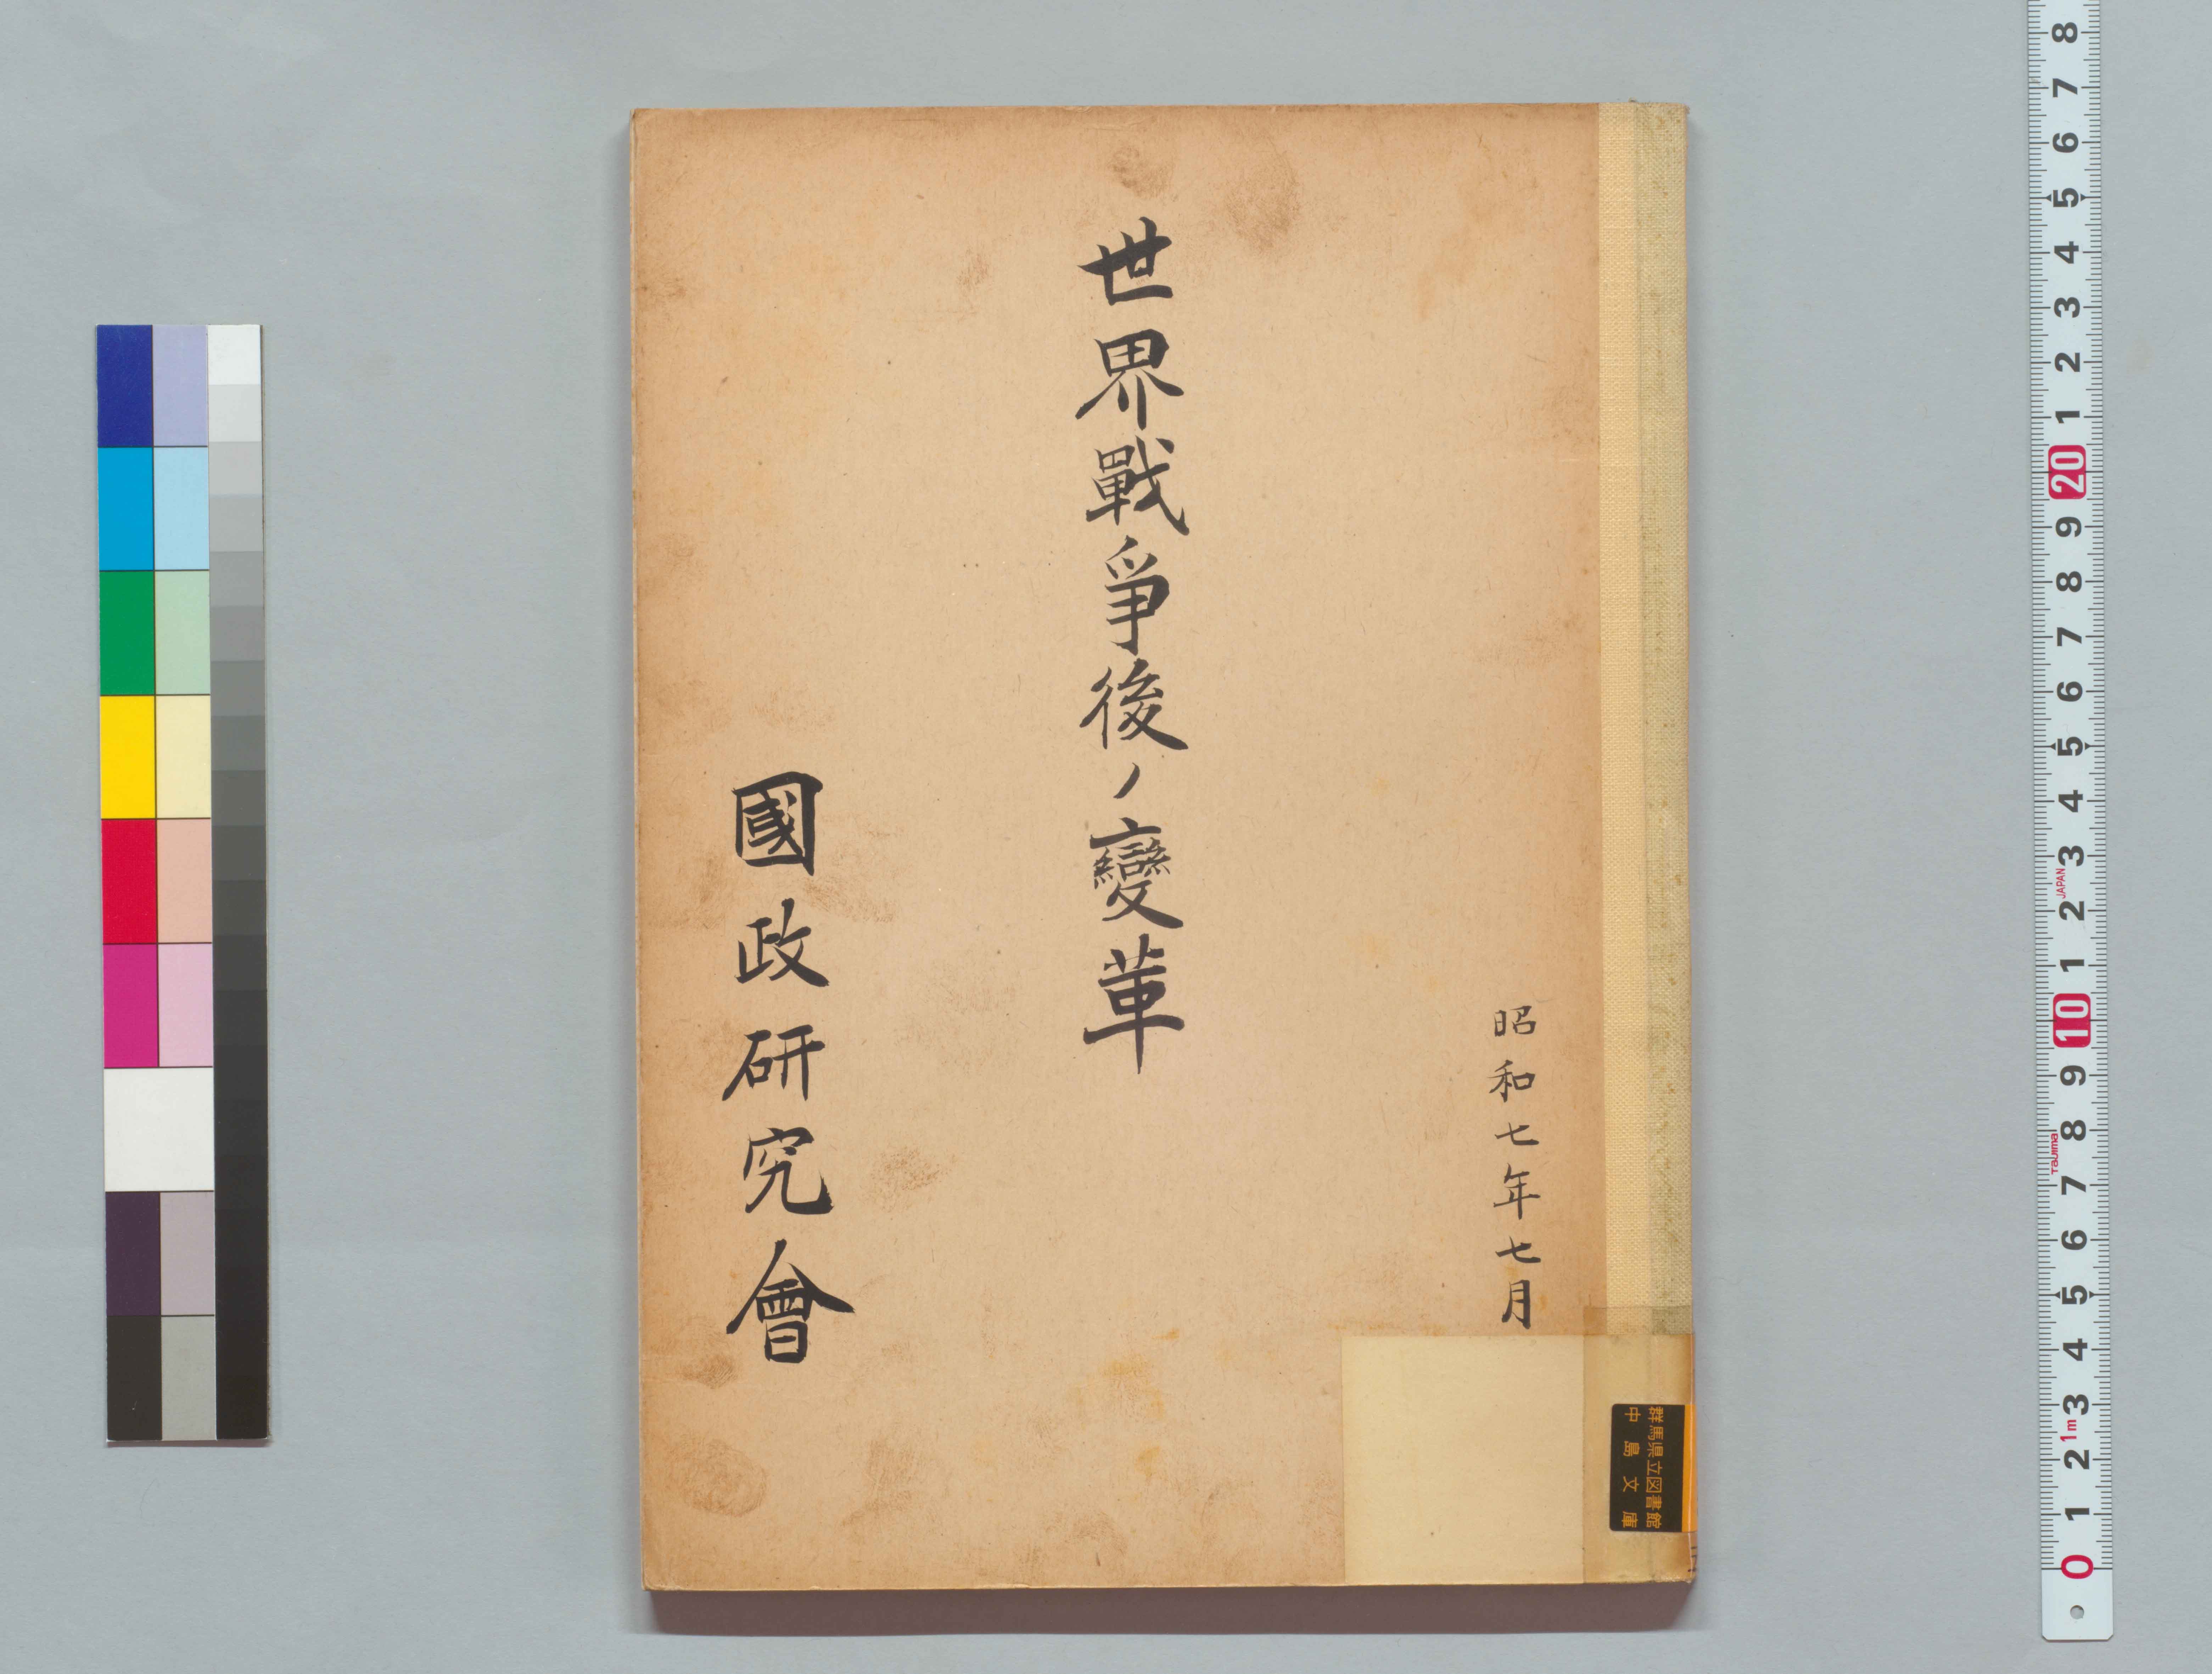 昭和七年七月
世界戰爭後ノ變革
國政研究會
群馬県立図書館
中島文庫
8
7
6
5
4
3
2
1
20
9
8
7
6
5
4
3
JAPAN
2
1
10
9
8
Tajima
7
6
5
4
3
1m
2
1
0